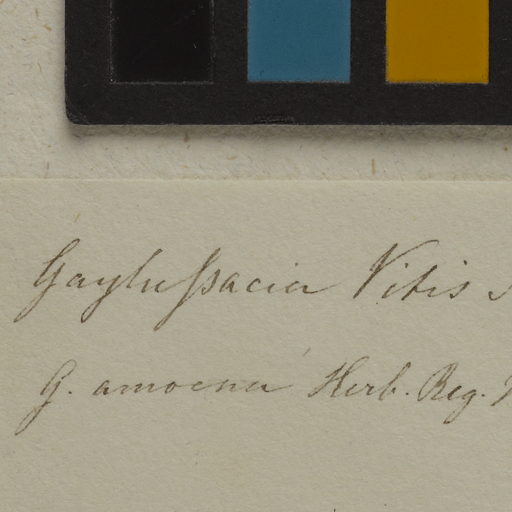 Gaylußacia Vitis
G. amoena Herb. Reg.